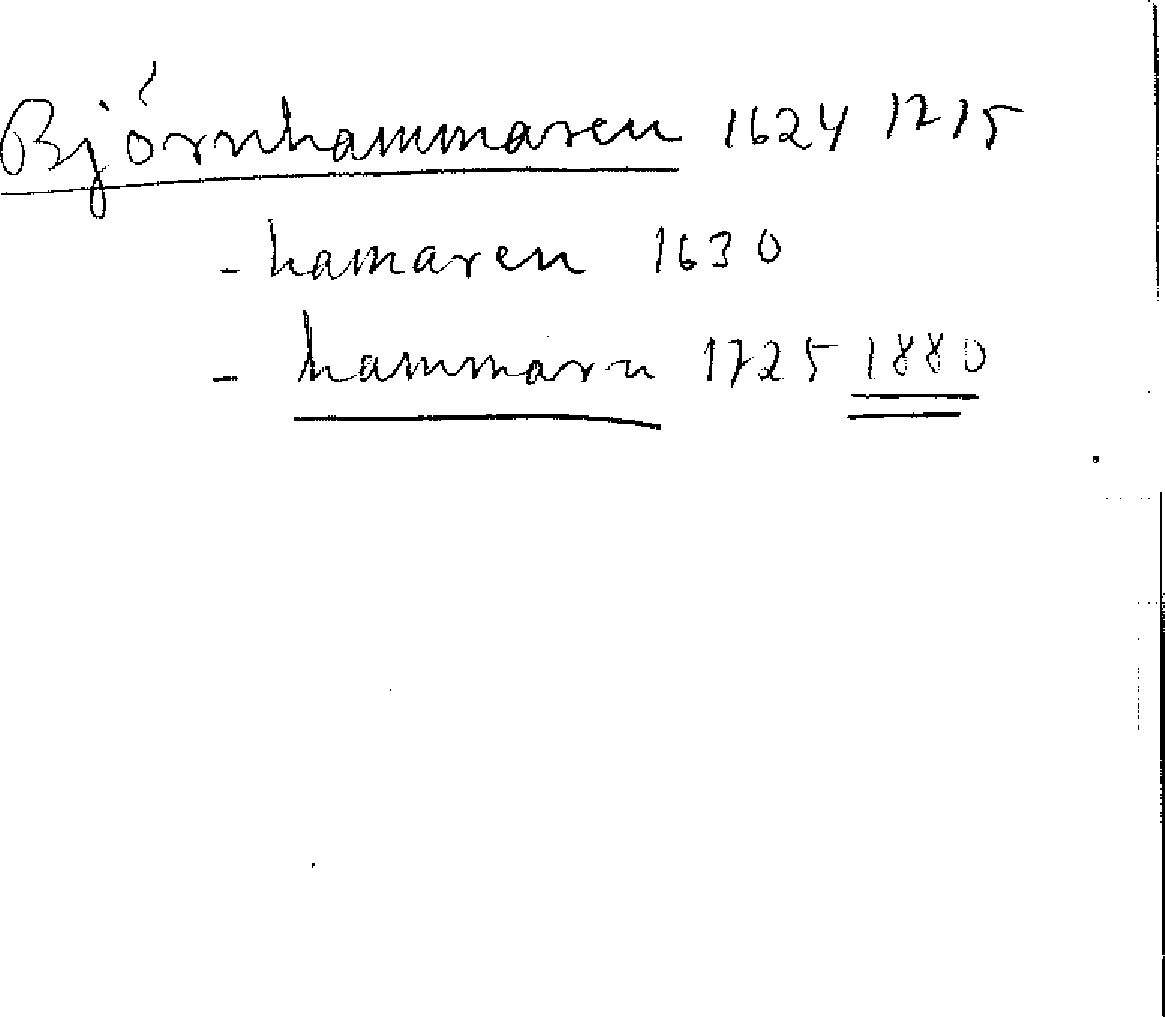 Björnhammaren 1624 1715
- hamaren 1630
- hammarn 1725 1880